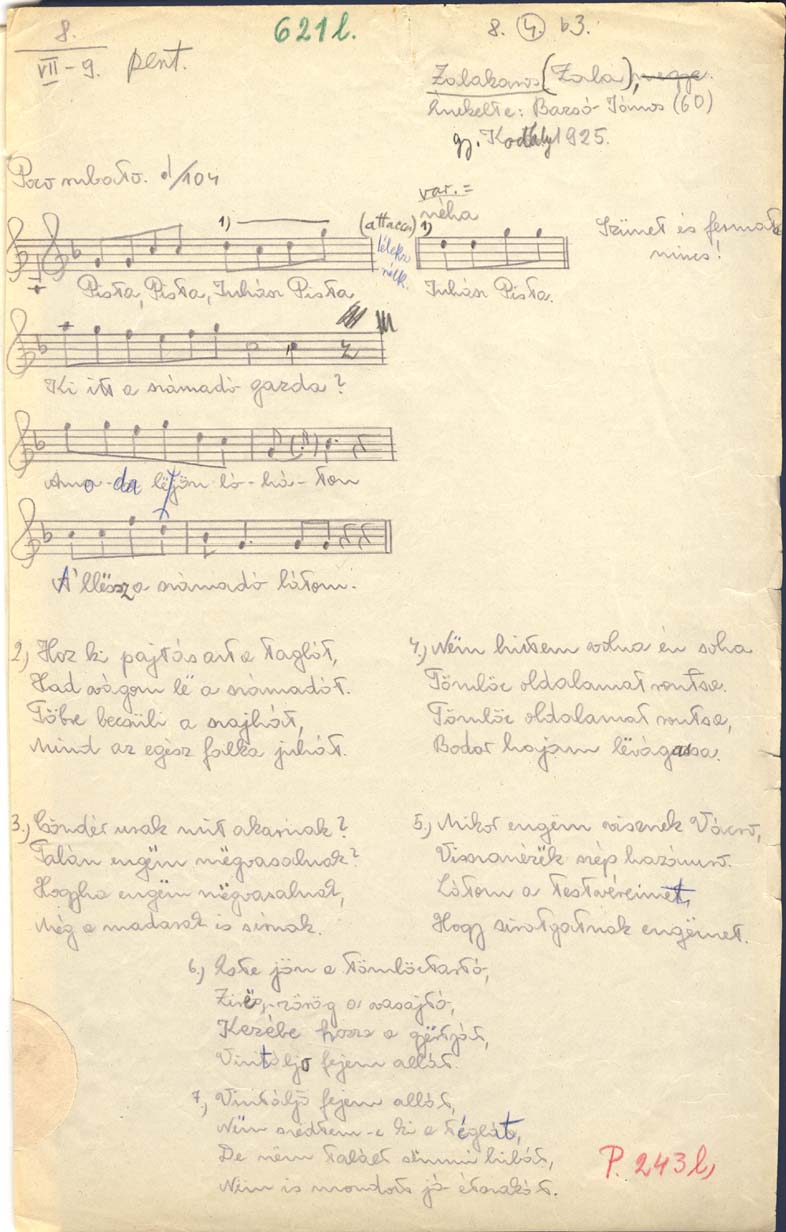 8.
VII-9. pent.
621 l.
8. 4. b3.
Zalakaros (Zala), megye.
Énekelte: Barsó János (60)
gy. Kodály 1925.
Poco rubato. /104
1) (attacca)
lélekz. nélk.
var. =
néha
1)
Szünet és fermata
nincs!
Pista, Pista, Juhász Pista
Juhász Pista.
Ki itt a számadó gazda?
Amo-da lëjön ló-há-ton
A' llësz a számadó látom.
2,) Hoz ki pajtás azt a taglót,
Had vágom lë a számadót.
Többre becsüli a szajhát,
Mind az egész falka juhát.
3.) Csöndér urak mit akarnak?
Talán engëm mëgvasalnak?
Hogyha engëm mëgvasalnak,
Még a madarak is sírnak.
4,) Nëm hittem volna én soha
Tömlöc oldalamat rontsa.
Tömlöc oldalamat rontsa,
Bodor hajam lëvágassa.
5,) Mikor engëm visznek Vácra,
Visszanézëk szép hazámra.
Látom a testvéreimet,
Hogy siratgatnak engëmet.
6,) Este jön a tömlöctartó,
Zirëg-zörög a vasajtó,
Kezébe hozza a gyërtyát,
Vizitálja fejem allát.
7,) Vizitálja fejem allát,
Nëm szedtem-e ki a téglát,
De nëm talált sëmmi hibát,
Nëm is mondott jó étszakát.
P. 243 l,